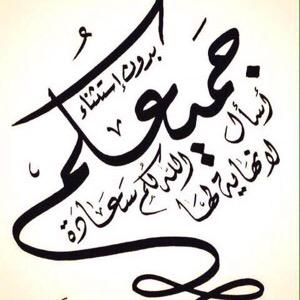 جميعكم
بدون إستثناء
أسأل الله لكم سعادة
لا نهاية لها